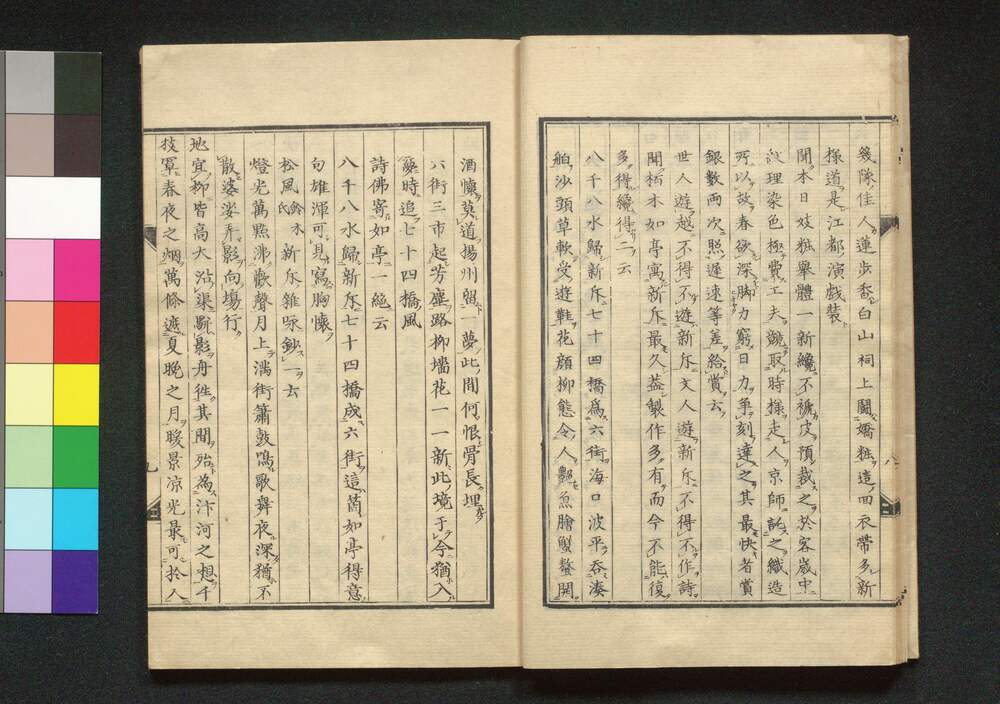 幾隊佳人蓮歩香白山祠上鬪嬌粧這回衣帶多新
様道是江都演戯裝
聞本日妓粧擧體一新纔不褫皮預裁之於客歳中
紋理染色極費工夫競取時様走人京師託之織造
所以故春欲深脚力窮日力爭刻達之其最快者賞
銀數兩次照遲速等差給賞云
世人遊越不得不遊新斥文人遊新斥不得不作詩
聞栢木如亭寓新斥最久葢製作多有而今不能復
多得纔得二云
八千八水歸新斥七十四橋爲六街海口波平呑湊
舶沙頭草軟受遊鞋花顔柳態令人艷魚膾蟹螯開
酒懷莫道揚州留一夢此間何恨骨長埋
六街三市起芳塵路柳墻花一一新此境于今猶入
夢時追七十四橋風
詩佛寄如亭一絶云
八千八水歸新斥七十四橋成六街這箇如亭得意
句雄渾可見寫胸懷
松風鈴木氏新斥雜咏鈔一云
燈光萬點沸歡聲月上滿街簫鼓鳴歌舞夜深猶不
散婆娑弄影向塲行
地宜柳皆高大沿渠斸影舟徃其間殆爲汴河之想千
技罩春夜之烟萬條遮夏晩之月暖景凉光最可於人